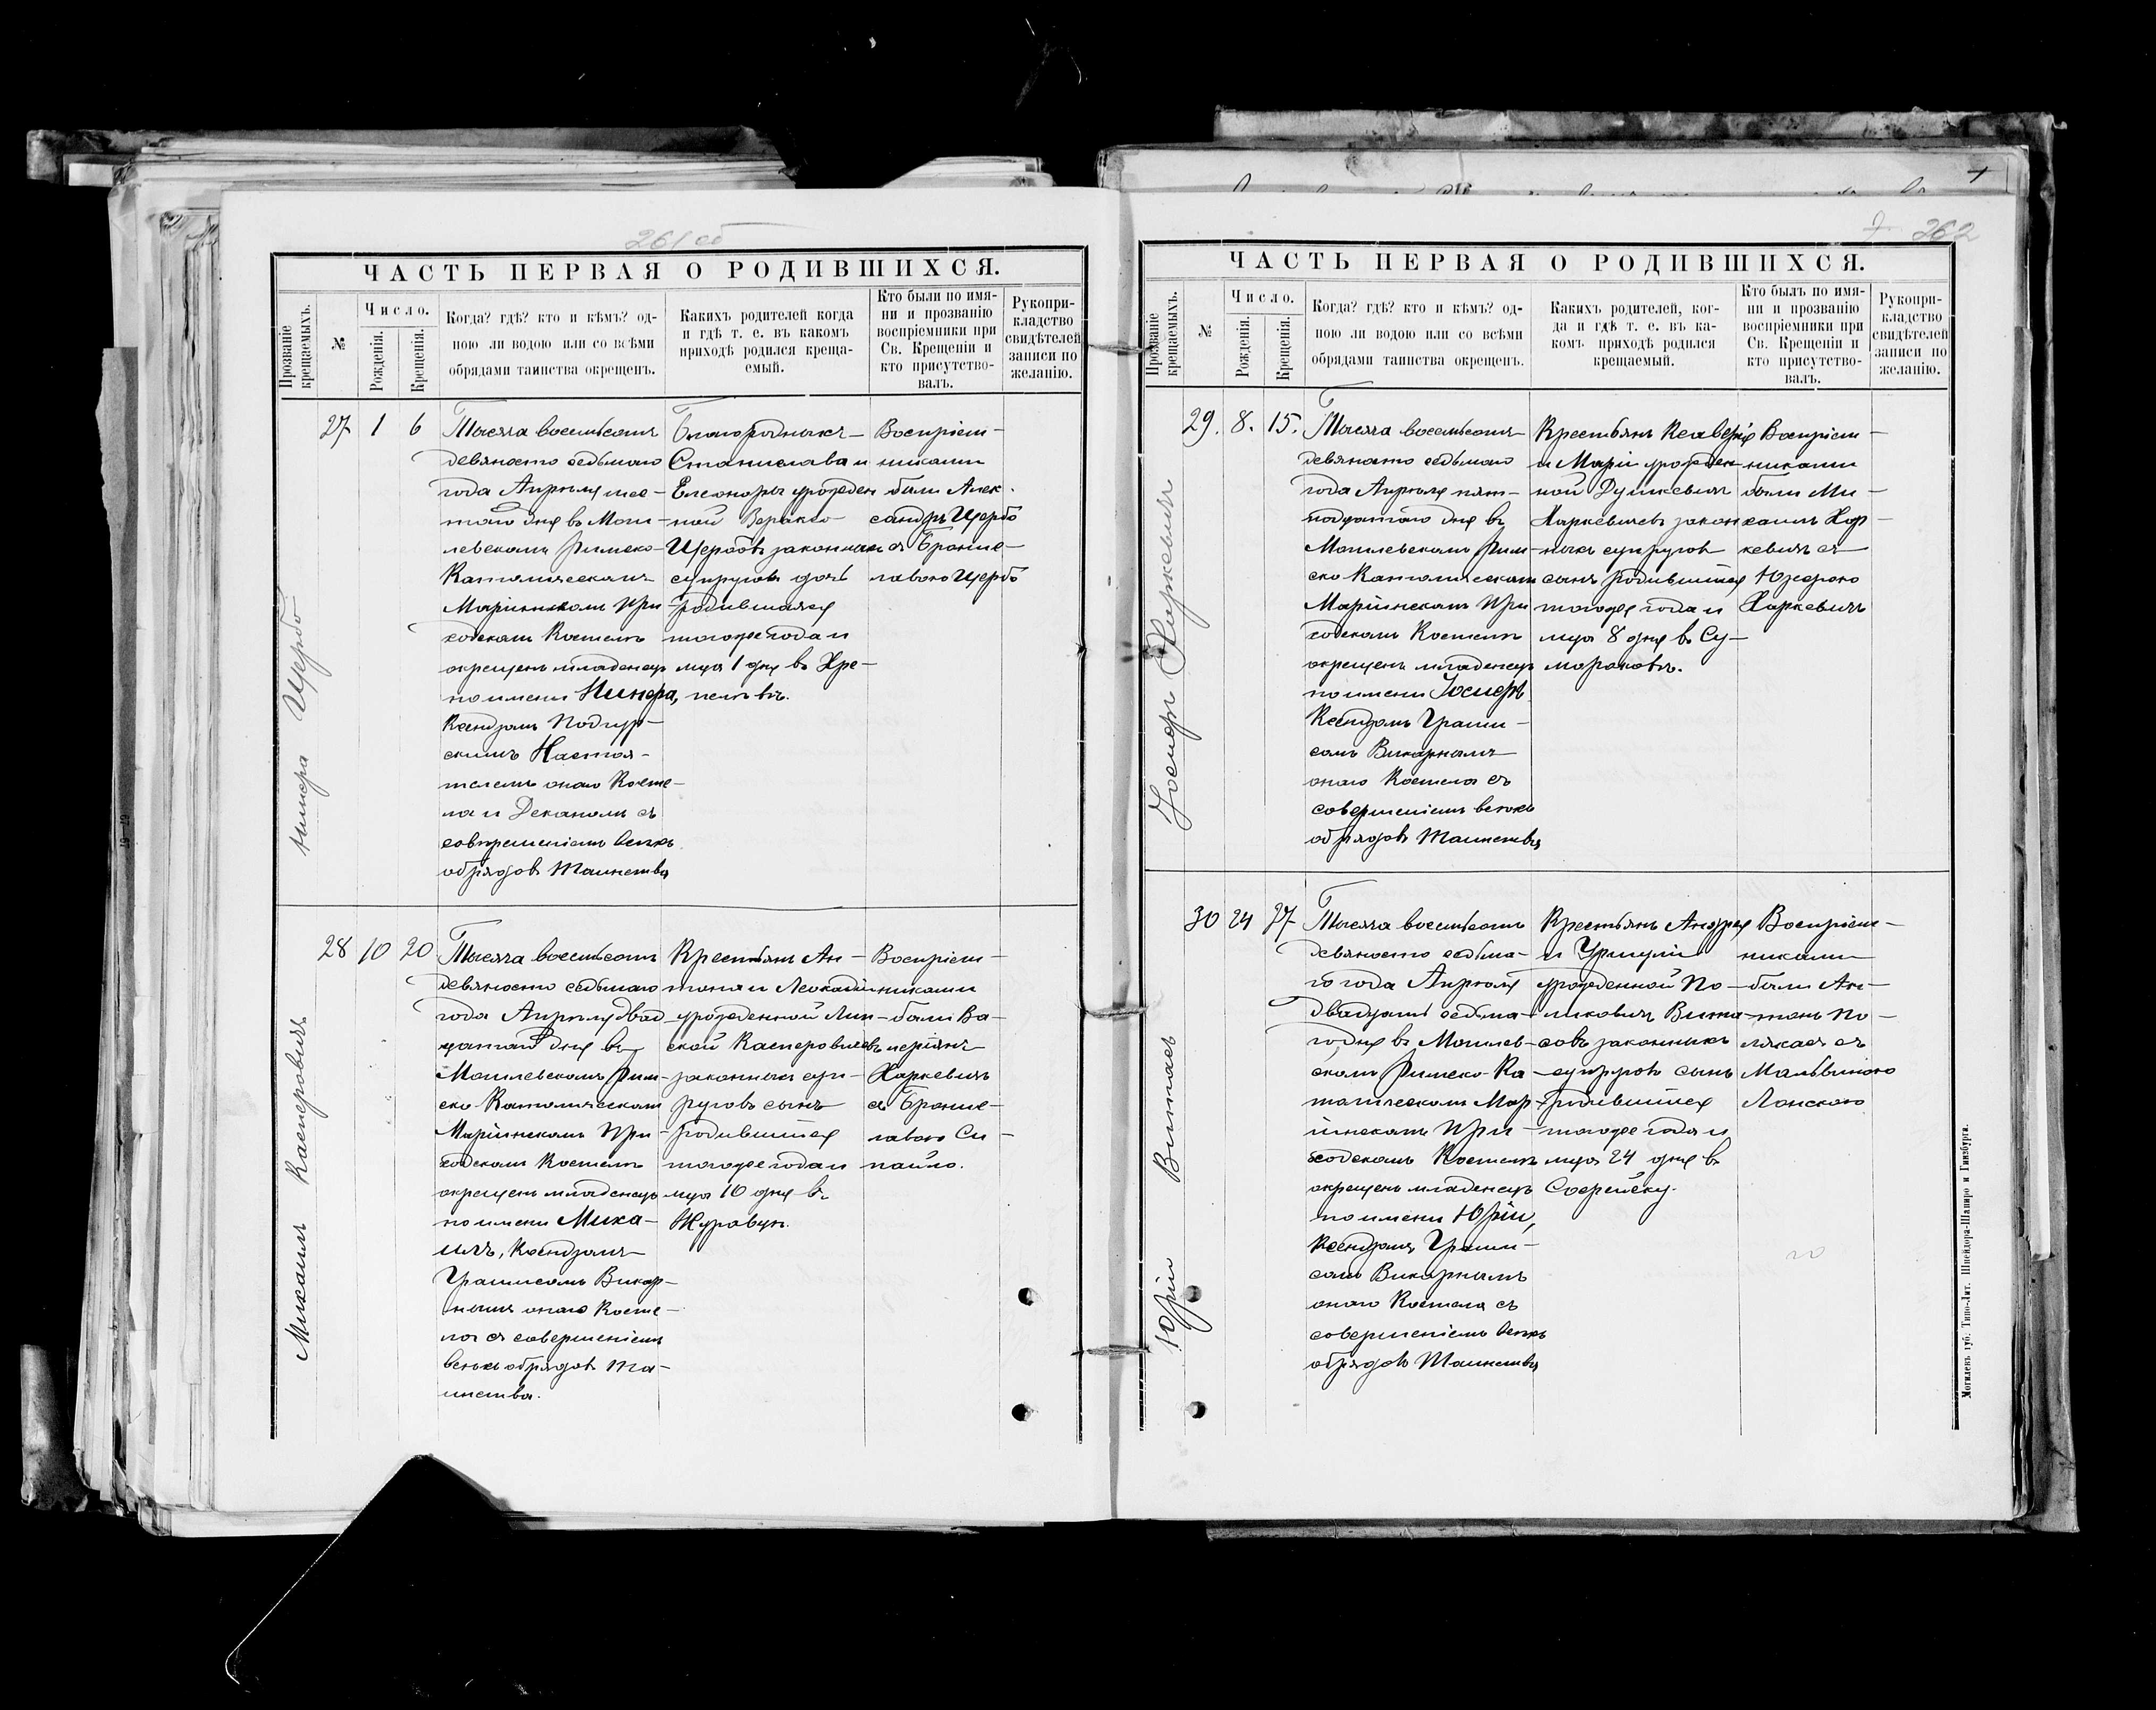 261 об
ЧАСТЬ ПЕРВАЯ О РОДИВШИХСЯ.
Прозваніе крещаемыхъ.
№
Число.
Рожденія.
Крещенія.
Когда? гдѣ? кто и кѣмъ? од-
ною ли водою или со всѣми
обрядами таинства окрещенъ.
Какихъ родителей когда
и гдѣ т. е. въ какомъ
приходѣ родился креща-
емый.
Кто были по имя-
ни и прозванію
воспріемники при
Св. Крещеніи и
кто присутство-
валъ.
Рукопри-
кладство
свидѣтелей
записи по
желанію.
Щербо
27 1 6
Тысяча восемьсотъ
девяносто седьмаго
года Апрѣля шес-
таго дня въ Моги-
левскомъ Римско-
Католическомъ
Маріинскомъ При-
ходскомъ Костелѣ
окрещенъ младенецъ
по имени
Ксендзомъ Подгур-
скимъ Настоя-
телемъ онаго Косте-
ла и Деканомъ съ
совершеніемъ всѣхъ
обрядовъ Таинства
Благородныхъ
Станислава и
Елеоноры урожден
ной Верыко
Щербовъ законныхъ
супруговъ дочь
родившаяся
тогоже года и
мца 1 дня въ Хре-
Воспріем-
никами
были Алек-
сандръ Щербо
съ Брониc-
лавою Щербо
Михаилъ Касперовичъ
28 10 20
Тысяча восемьсотъ
девяносто седьмаго
года Апрѣля двад-
цатаго дня въ
Могилевскомъ Рим-
ско Католическомъ
Маріинскомъ При-
ходскомъ Костелѣ
окрещенъ младенецъ
по имени Миха-
илъ, Ксендзомъ
Грашисомъ Викар-
нымъ онаго Косте-
ла съ совершеніемъ
всѣхъ обрядовъ Та-
инства.
Крестьянъ Ан-
тона и Леокадіи
урожденной Лип-
ской Касперовичевъ
законныхъ суп-
руговъ сынъ
родившійся
тогоже года и
мца 10 дня въ
Воспріем-
никами
были Ва-
леріянъ
Харкевичъ
съ Бронис-
лавою Си-
пайло.
262
ЧАСТЬ ПЕРВАЯ О РОДИВШИХСЯ.
Прозваніе крещаемыхъ.
№
Число.
Рожденія.
Крещенія.
Когда? гдѣ? кто и кѣмъ? од-
ною ли водою или со всѣми
обрядами таинства окрещенъ.
Какихъ родителей, ког-
да и гдѣ т. е. въ ка-
комъ приходѣ родился
крещаемый.
Кто былъ по имя-
ни и прозванію
воспріемники при
Св. Крещеніи и
кто присутство-
валъ.
Рукопри-
кладство
свидѣтелей
записи по
желанію.
Іосифъ Харкевичъ
29. 8. 15.
Тысяча восемьсотъ
девяносто седьмаго
года Апрѣля пят-
надцатаго дня въ
Могилевскомъ Рим-
ско Католическомъ
Маріинскомъ При-
ходскомъ Костелѣ
окрещенъ младенецъ
по имени Іосифъ
Ксендзомъ Граши-
сомъ Викарнымъ
онаго Костела съ
совершеніемъ всѣхъ
обрядовъ Таинства
Крестьянъ Ксаверія
и Маріи урожден-
ной Душкевичъ
Харкевичевъ закон-
ныхъ супруговъ
сынъ родившійся
тогоже года и
мца 8 дня въ Су-
марокова.
Воспріем-
никами
были Ми-
хаилъ Хар-
кевичъ съ
Юзефою
Харкевичъ
Юрій Витаосъ
30 24 27
Тысяча восемьсотъ
девяносто седьма-
го года Апрѣля
двадцать седьма-
го дня въ Могилев-
скомъ Римско-Ка-
толическомъ Мар-
іинскомъ При-
ходскомъ Костелѣ
окрещенъ младенецъ
по имени Юрій,
Ксендзомъ Граши-
сомъ Викарнымъ
онаго Костела съ
совершеніемъ всѣхъ
обрядовъ Таинства
Крестьянъ Андрея
и Уршули
урожденной По-
ликовичъ
законныхъ
супруговъ сынъ
родившійся
тогоже года и
мца 24 дня въ
Воспріем-
никами
были Ан-
тонъ По-
съ
Мальвиною
Лонскою
Могилевъ губ. Типо-Лит. Шнейдора-Шапиро и Гинзбурга.